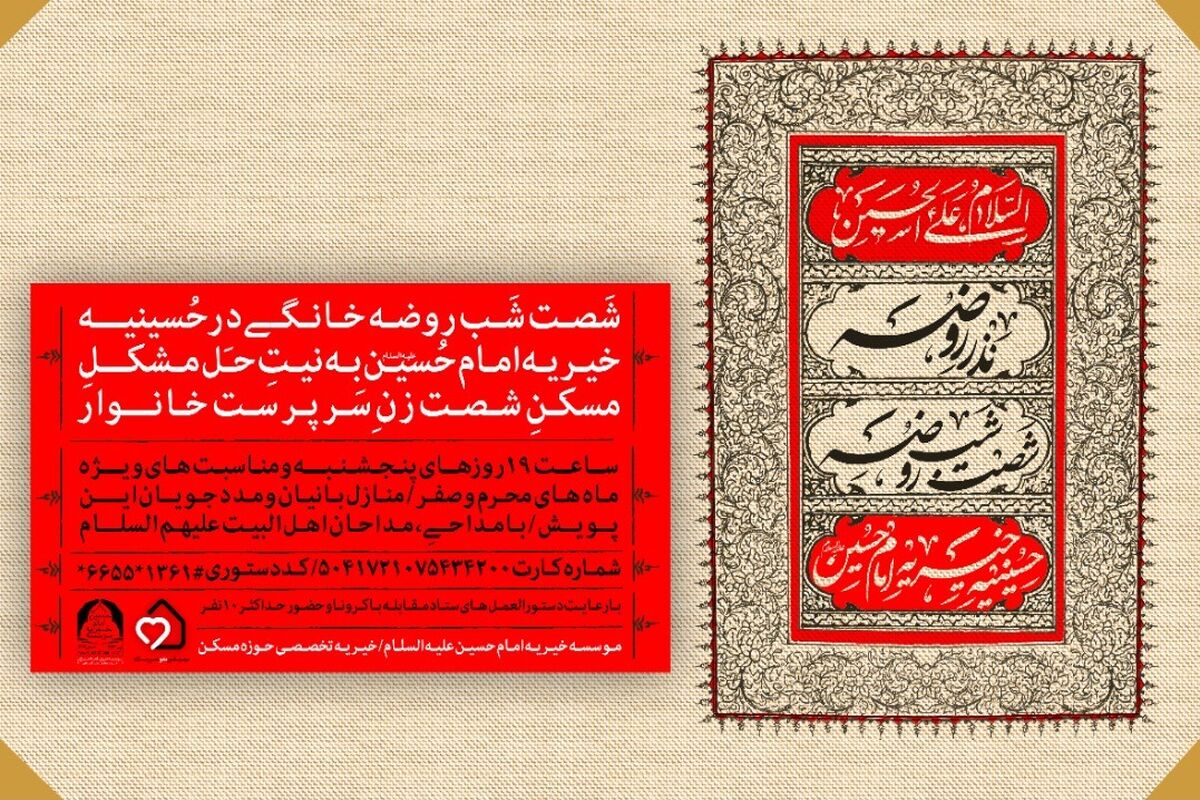 السَّلامُ عَلَی الحسین
نذر روضه
شصت شب روضه
حسینیه خیریه امام حسین
شَصت شَب روضه خانگی در حُسینیه
خیریه امام حُسین علیه‌السلام به نیتِ حَل مشکلِ
مسکنِ شصت زنِ سَرپرست خانوار
ساعت ۱۹ روزهای پنجشنبه و مناسبت های ویژه
ماه های محرم و صفر / منازل بانیان و مددجویان این
پویش / با مداحیِ، مداحان اهل البیت علیهم السلام
شماره کارت ۵۰۴۱۷۲۱۰۷۵۴۳۴۲۰۰ / کد دستوری #۱۳۶۱*۶۶۵۵*
با رعایت دستورالعمل های ستاد مقابله با کرونا و حضور حداکثر ۱۰ نفر
موسسه خیریه امام حسین علیه السلام / خیریه تخصصی حوزه مسکن